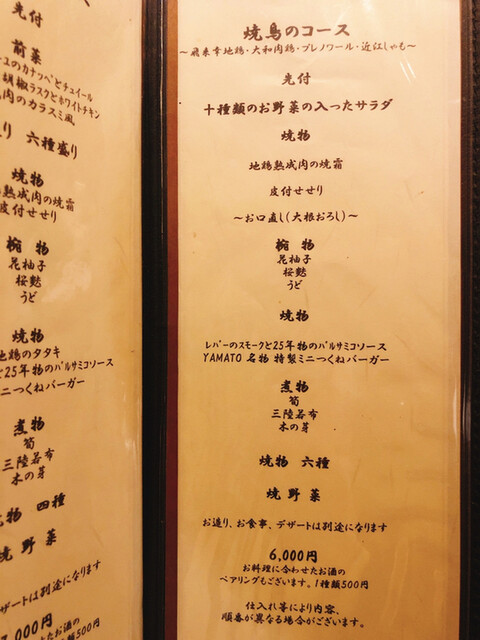 先付
前菜
ユのカナッペとチュイール
胡椒ラスクとホワイトチキン
肉のカラスミ風
り 六種盛り
焼物
熟成肉の焼霜
皮付せせり
椀物
花柚子
桜麩
うど
焼物
地鶏のタタキ
と25年物のバルサミコソース
ニつくねバーガー
煮物
筍
三陸若布
木の芽
物 四種
焼野菜
デザートは別途になります
,000円
せたお酒の
500円
焼鳥のコース
～飛来幸地鶏・大和肉鶏・プレノワール・近江しゃも～
先付
十種類のお野菜の入ったサラダ
焼物
地鶏熟成肉の焼霜
皮付せせり
～お口直し(大根おろし)～
椀物
花柚子
桜麩
うど
焼物
レバーのスモークと25年物のバルサミコソース
YAMATO 名物 特製ミニつくねバーガー
煮物
筍
三陸若布
木の芽
焼物 六種
焼野菜
お造り、お食事、デザートは別途になります
6,000円
お料理に合わせたお酒の
ペアリングもございます。1種類500円
仕入れ等により内容、
順番が異なる場合がございます。